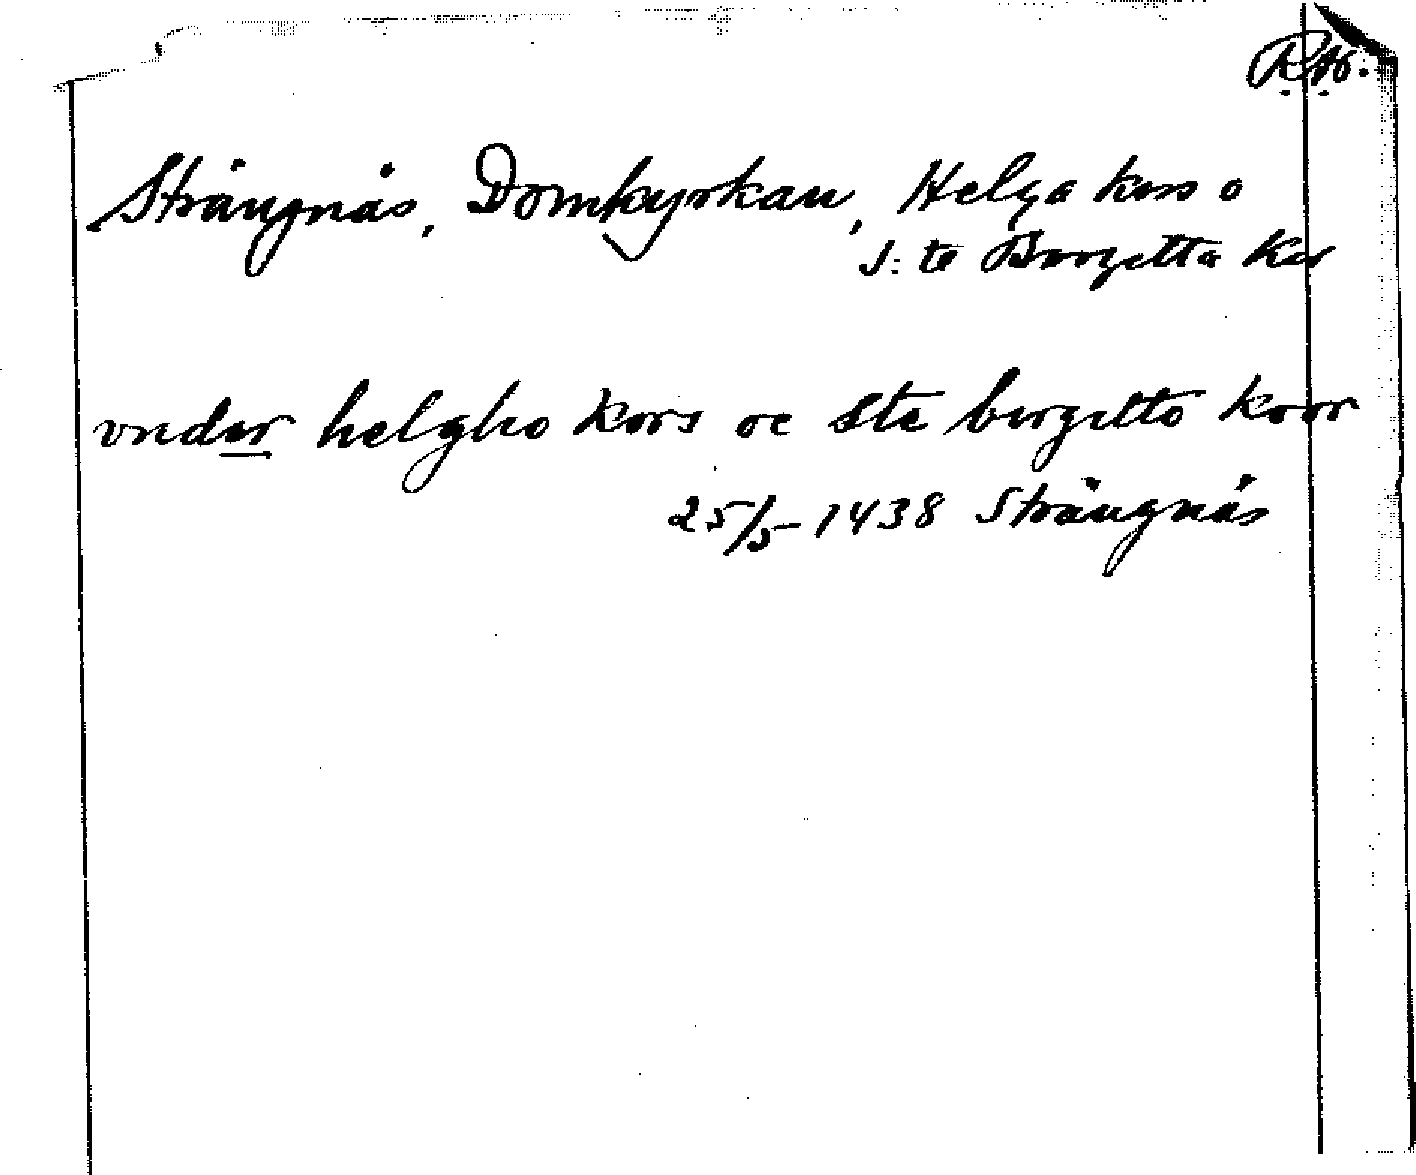 Strängnäs, Domkyrkan, Helga kors o
S:te Birgitta kor
vnder helgho kors oc Ste birgitto koor
25/5 1438 Strängnäs